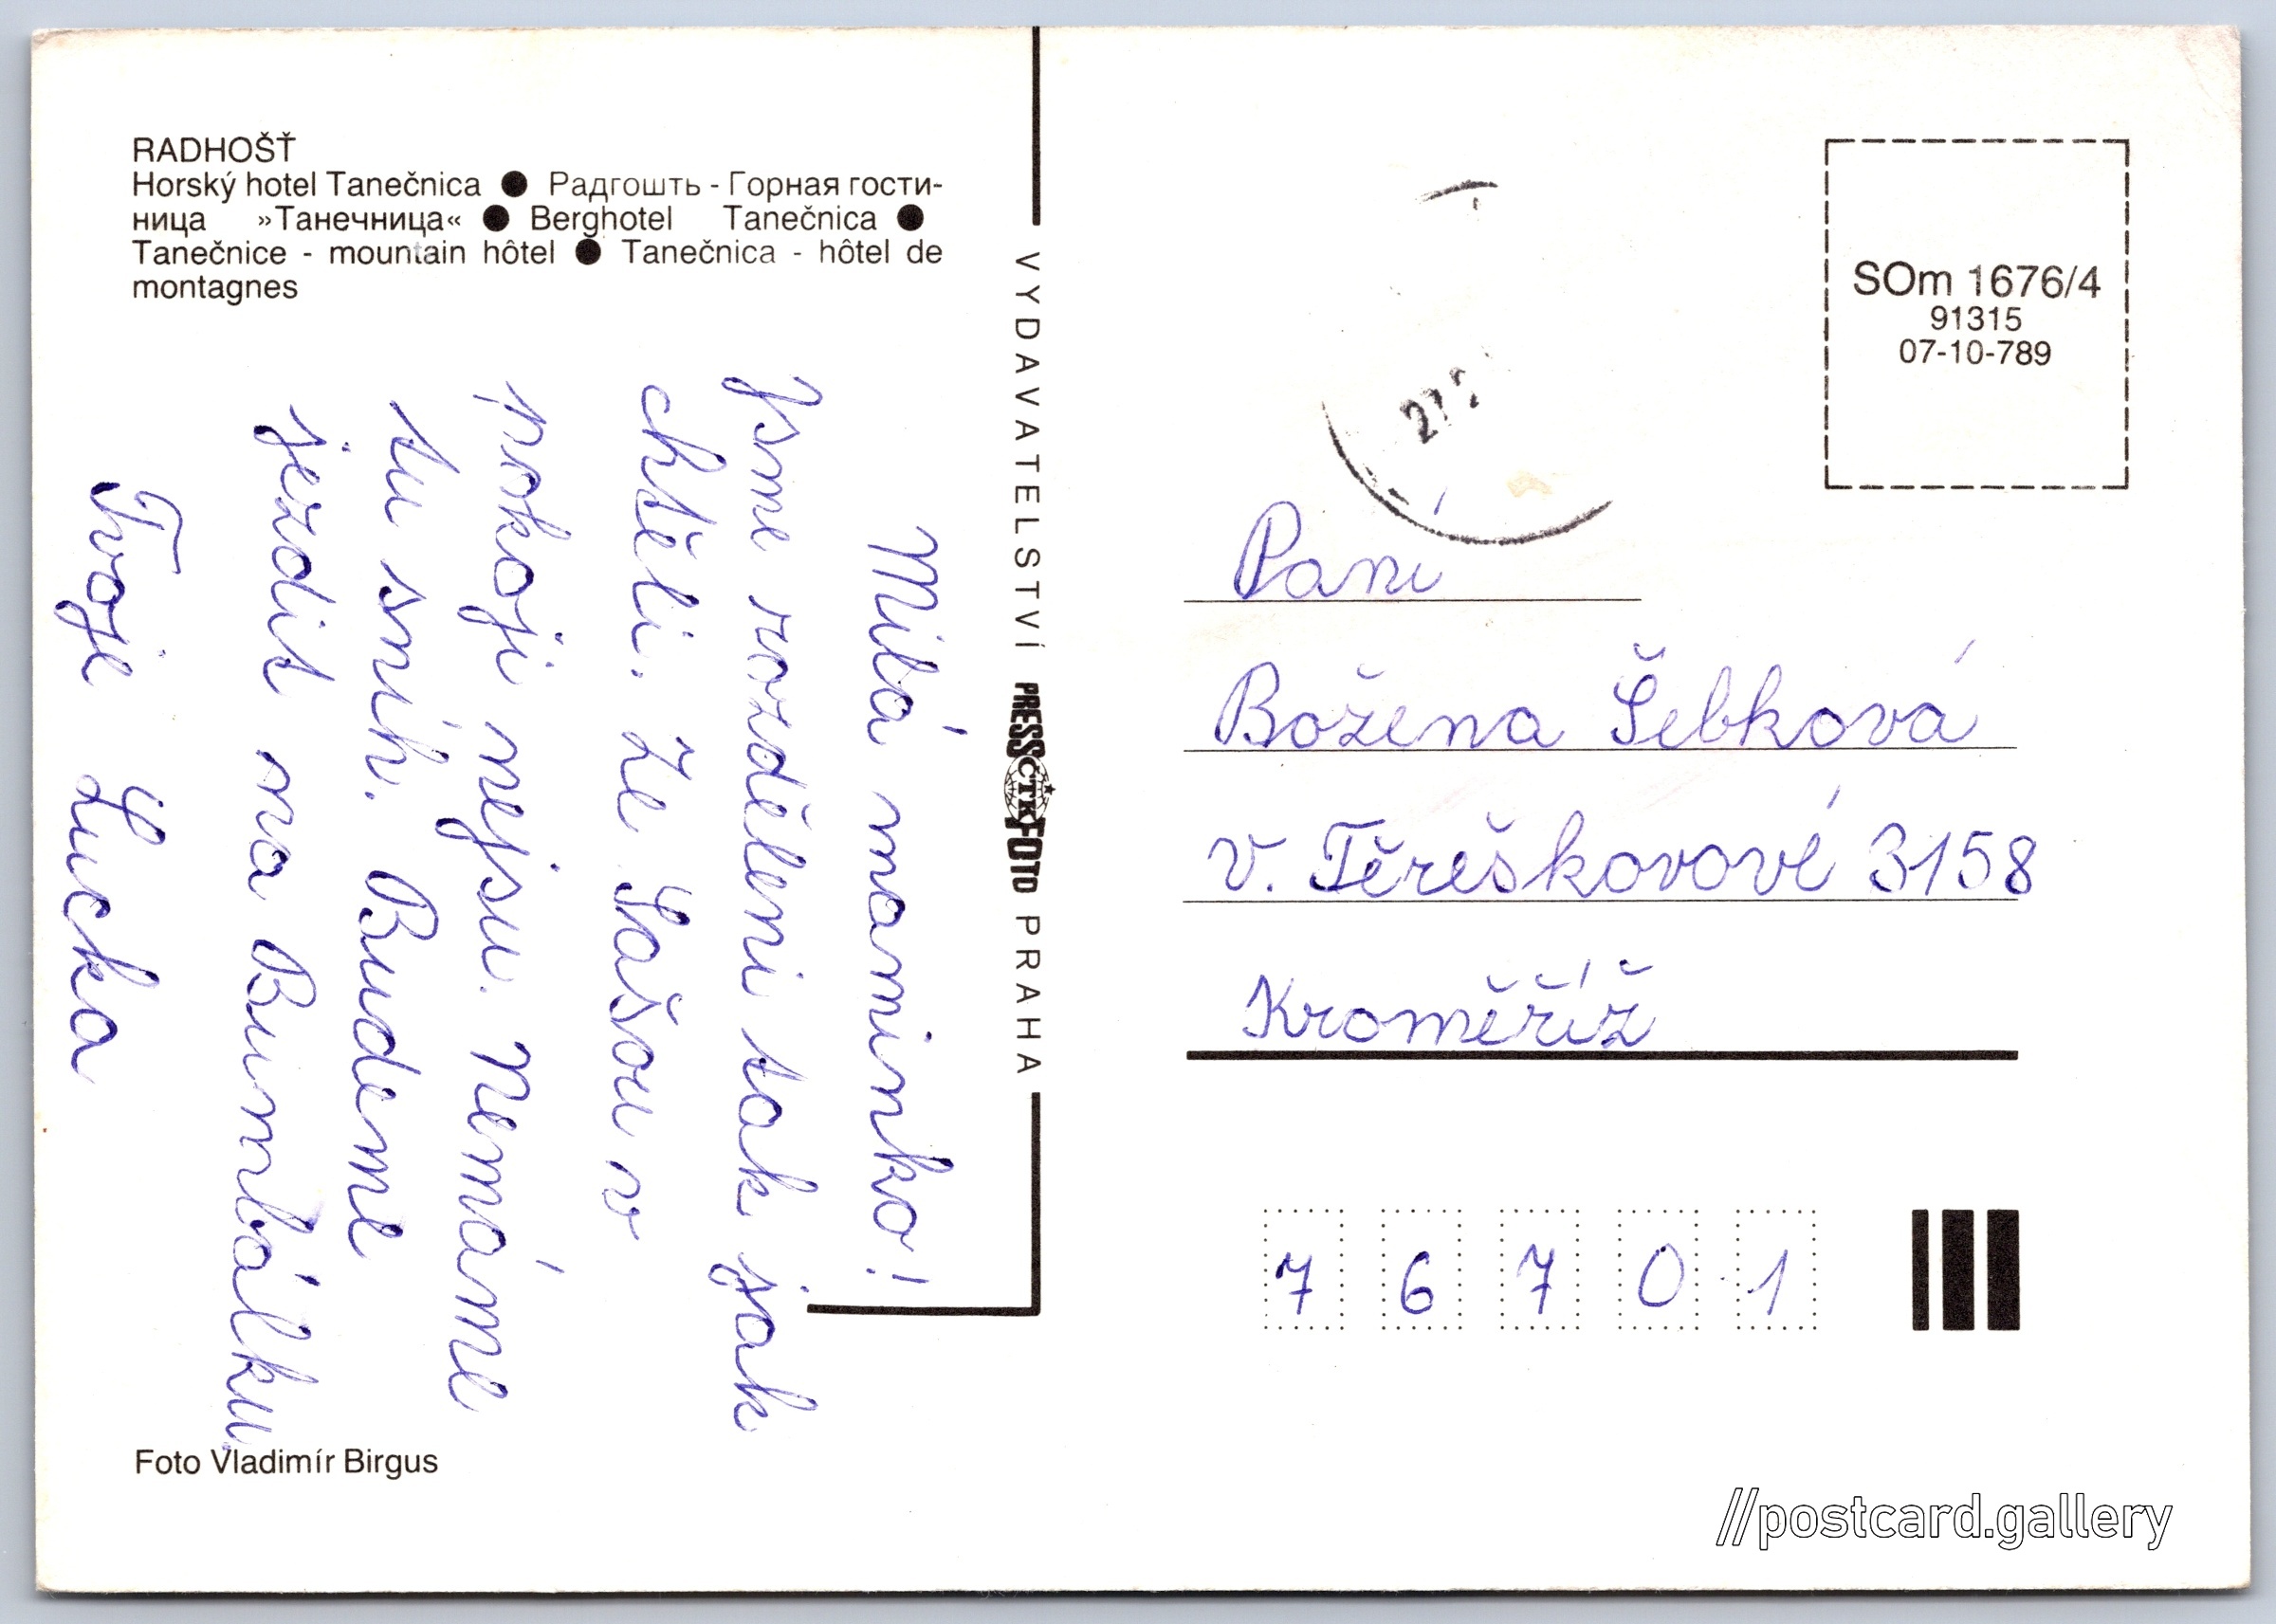 RADHOŠŤ
Horský hotel Tanečnica ● Радгошть - Горная гости-
ница »Танечница« ● Berghotel Tanečnica ●
Tanečnice - mountain hôtel ● Tanečnica - hôtel de
montagnes
Milá maminko!
Jsme rozděleni tak jak
chtěli. Že Sašou v
pokoji nejsu. Nemáme
tu sníh. Budeme
jezdit na Bumbálku
Tvoje Lucka
Foto Vladimír Birgus
VYDAVATELSTVÍ PRESSČTKFOTO PRAHA
SOm 1676/4
91315
07-10-789
Paní
Božena Šebková
v. Těreškovové 3158
Kroměříž
76701
//postcard.gallery